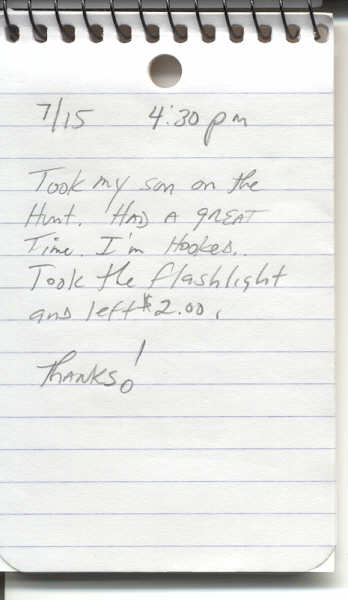 7/15 4:30 pm
Took my son on the
Hunt. HAD A GREAT
Time. I'm Hooked.
Took the flashlight
and left $2.00.
THANKS!